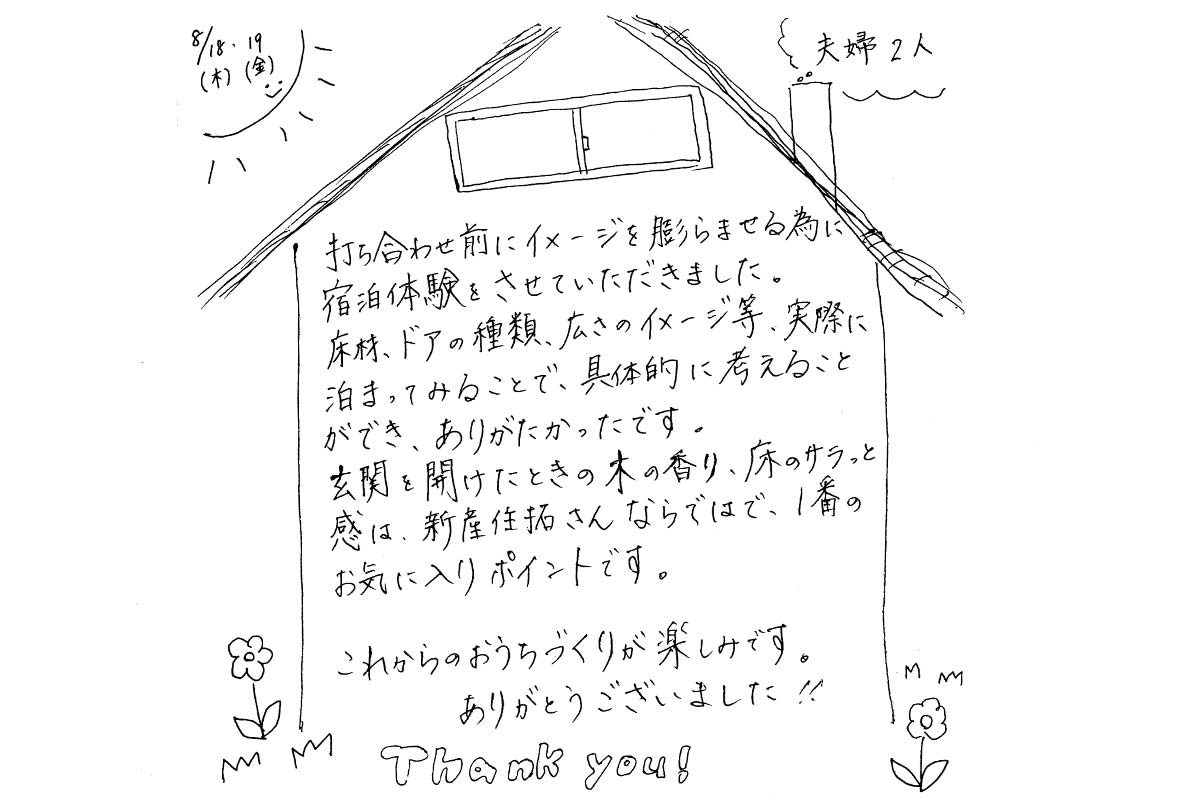 8/18・19
(木)(金)
夫婦2人
打ち合わせ前にイメージを膨らませる為に
宿泊体験をさせていただきました。
床材、ドアの種類、広さのイメージ等、実際に
泊まってみることで、具体的に考えること
ができ、ありがたかったです。
玄関を開けたときの木の香り、床のサラっと
感は、新産住拓さんならではで、1番の
お気に入りポイントです。
これからのおうちづくりが楽しみです。
ありがとうございました!!
Thank you!